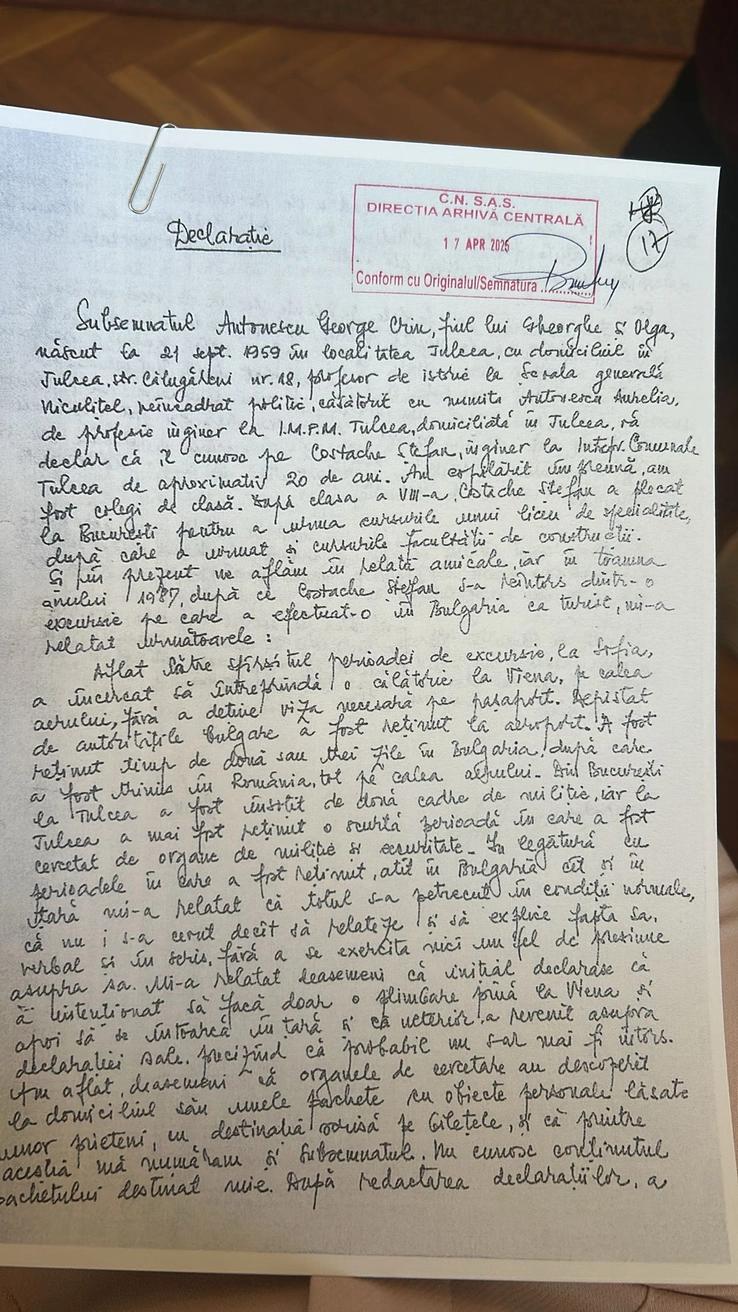 C.N.S.A.S.
DIRECTIA ARHIVĂ CENTRALĂ
17 APR 2025
Conform cu Originalul/Semnatura
17
Declarație
Subsemnatul Antonescu George Crin, fiul lui Gheorghe și Olga,
născut la 21 sept. 1959 în localitatea Tulcea, cu domiciliul în
Tulcea, str. Călugăreni nr. 18, profesor de istorie la Școala generală
Niculițel, neîncadrat politic, căsătorit cu numita Antonescu Aurelia,
de profesie inginer la I.M.P.M. Tulcea, domiciliată în Tulcea, vă
declar că îl cunosc pe Costache Ștefan, inginer la Întrepr. Comunale
Tulcea de aproximativ 20 de ani. Am copilărit împreună, am
fost colegi de clasă. După clasa a VIII-a, Costache Ștefan a plecat
la București pentru a urma cursurile unui liceu de specialitate,
după care a urmat și cursurile facultății de construcții.
Și în prezent ne aflăm în relații amicale, iar în toamna
anului 1987, după ce Costache Ștefan s-a reîntors dintr-o
excursie pe care a efectuat-o în Bulgaria ca turist, mi-a
relatat următoarele :
Aflat către sfîrșitul perioadei de excursie, la Sofia,
a încercat să întreprindă o călătorie la Viena, pe calea
aerului, fără a deține viza necesară pe pașaport. Depistat
de autoritățile bulgare a fost reținut la aeroport. A fost
reținut timp de două sau trei zile în Bulgaria, după care
a fost trimis în România, tot pe calea aerului. Din București
la Tulcea a fost însoțit de două cadre de miliție, iar la
Tulcea a mai fost reținut o scurtă perioadă în care a fost
cercetat de organe de miliție și securitate. În legătură cu
perioadele în care a fost reținut, atît în Bulgaria cît și în
țară mi-a relatat că totul s-a petrecut în condiții normale,
că nu i s-a cerut decît să relateze și să explice fapta sa,
verbal și în scris, fără a se exercita nici un fel de presiune
asupra sa. Mi-a relatat deasemeni că inițial declarase că
a intenționat să facă doar o plimbare pînă la Viena și
apoi să se întoarcă în țară și că ulterior a revenit asupra
declarației sale, precizînd că probabil nu s-ar mai fi întors.
Am aflat, deasemeni că organele de cercetare au descoperit
la domiciliul său unele pachete cu obiecte personale lăsate
unor prieteni, cu destinația scrisă pe bilețele, și că printre
aceștia mă număram și subsemnatul. Nu cunosc conținutul
pachetului destinat mie. După redactarea declarațiilor, a